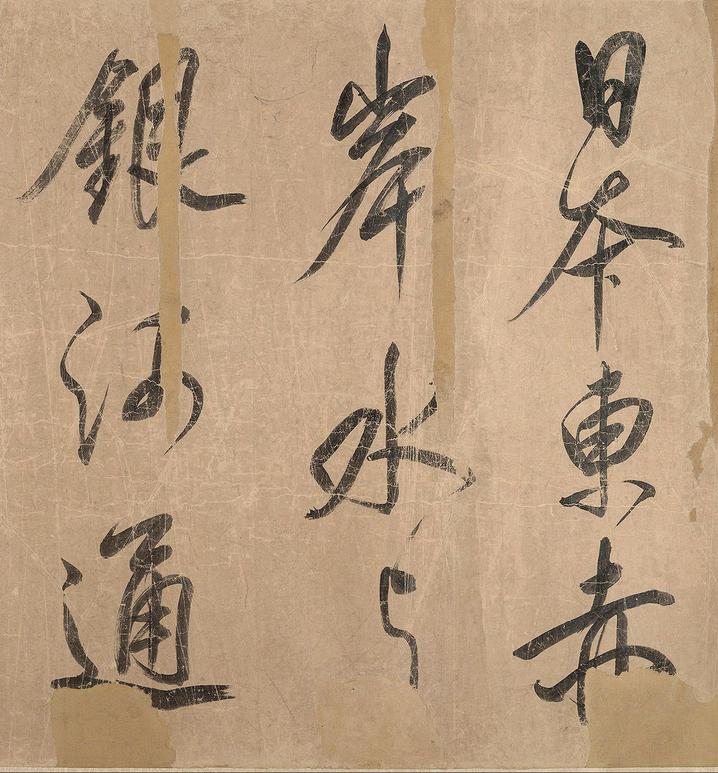 日本東赤
岸水与
銀河通